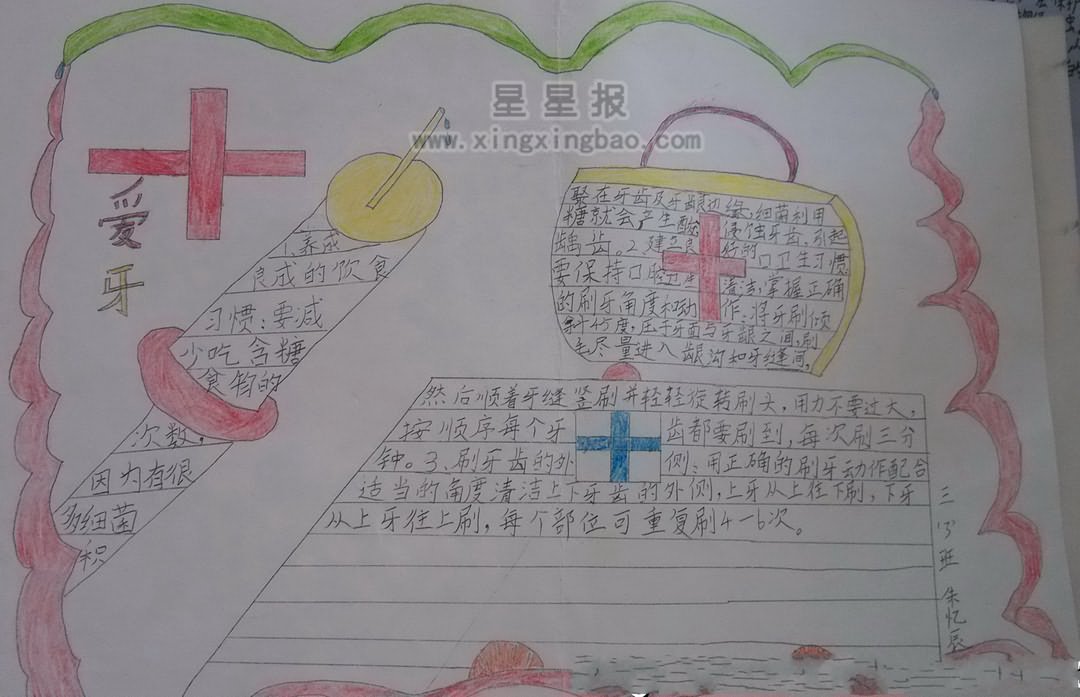 星星报
www.xingxingbao.com
爱
牙
1、养成
良成的饮食
习惯：要减
少吃含糖
食物的
次数，
因为有很
多细菌
积
聚在牙齿及牙龈边缘，细菌利用
糖就会产生酸 侵蚀牙齿、引起
龋齿。2、建立良 好的口卫生习惯
要保持口腔卫生 清洁，掌握正确
的刷牙角度和动 作：将牙刷倾
斜45度，压于牙面与牙龈之间，刷
毛尽量进入龈沟和牙缝间，
然后顺着牙缝竖刷并轻轻旋转刷头，用力不要过大，
按顺序每个牙 齿都要刷到，每次刷三分
钟。3、刷牙齿的外 侧：用正确的刷牙动作配合
适当的角度清洁上下牙齿的外侧，上牙从上往下刷，下牙
从上牙往上刷，每个部位可重复刷4-6次。
三(3)班 朱忆辰